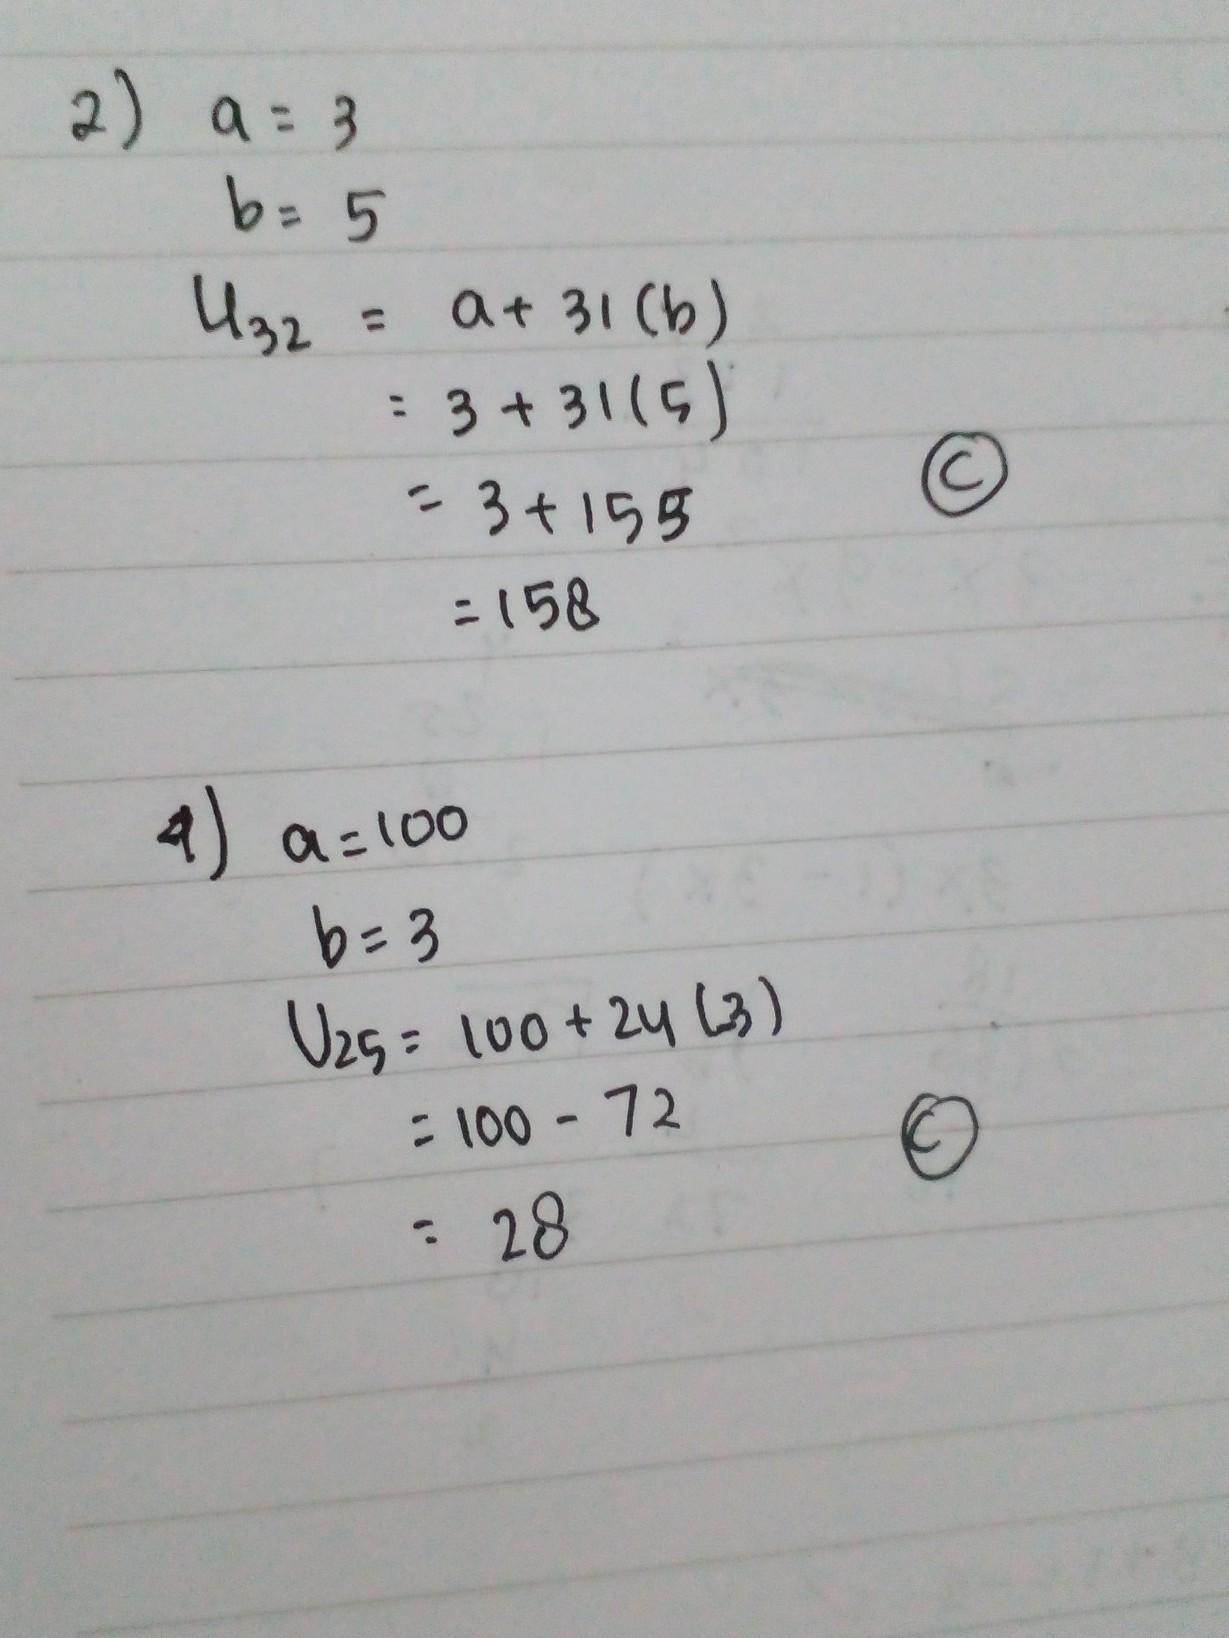 2) a = 3
b = 5
U32 = a + 31 (b)
= 3 + 31 (5)
= 3 + 155
C
= 158
4) a = 100
b = 3
U25 = 100 + 24 (3)
= 100 - 72
C
= 28